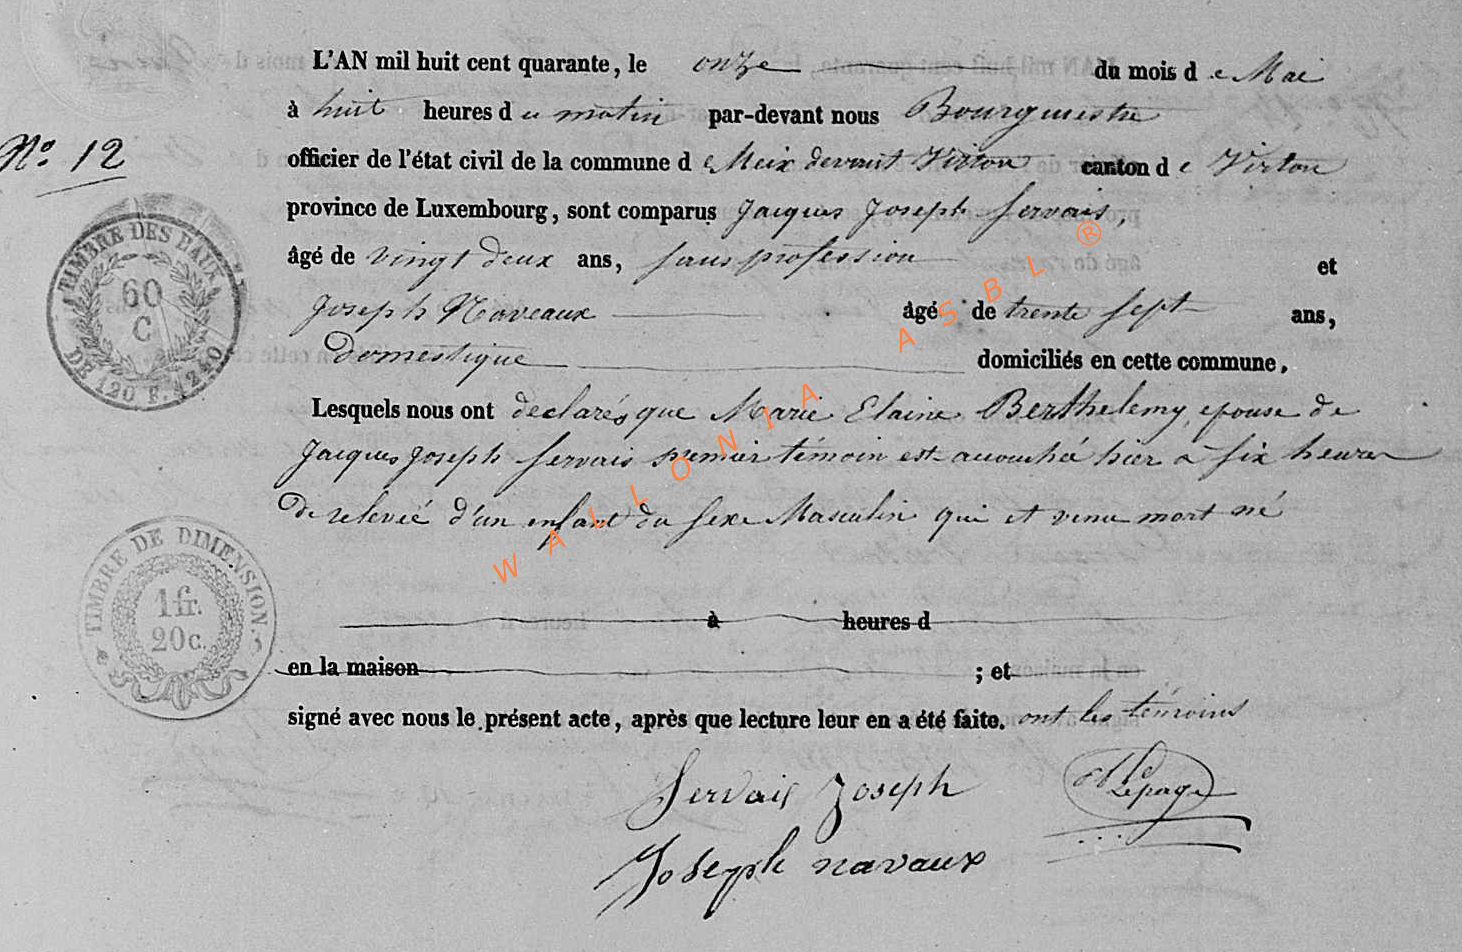 L'AN mil huit cent quarante, le onze du mois de Mai
à huit heures du matin par-devant nous Bourgmestre
officier de l'état civil de la commune de Meix devant Virton canton de Virton
province de Luxembourg, sont comparus Jacques Joseph Servais,
âgé de vingt deux ans, sans profession et
Joseph Naveaux âgé de trente sept ans,
Domestique domiciliés en cette commune.
Lesquels nous ont declarés que Marie Elaine Berthelemy, epouse de
Jacques Joseph Servais premier témoin est accouchée hier à six heures
De relevée d'un enfant du sexe Masculin qui et venu mort né
à heures d
en la maison ; et
signé avec nous le présent acte, après que lecture leur en a été faite. ont les témoins
Servais Joseph
Lepage
Joseph navaux
No. 12
TIMBRE DES
60
C
TIMBRE DE DIMENSION.
1 fr.
20 c.
WALLONIA ASBL ®